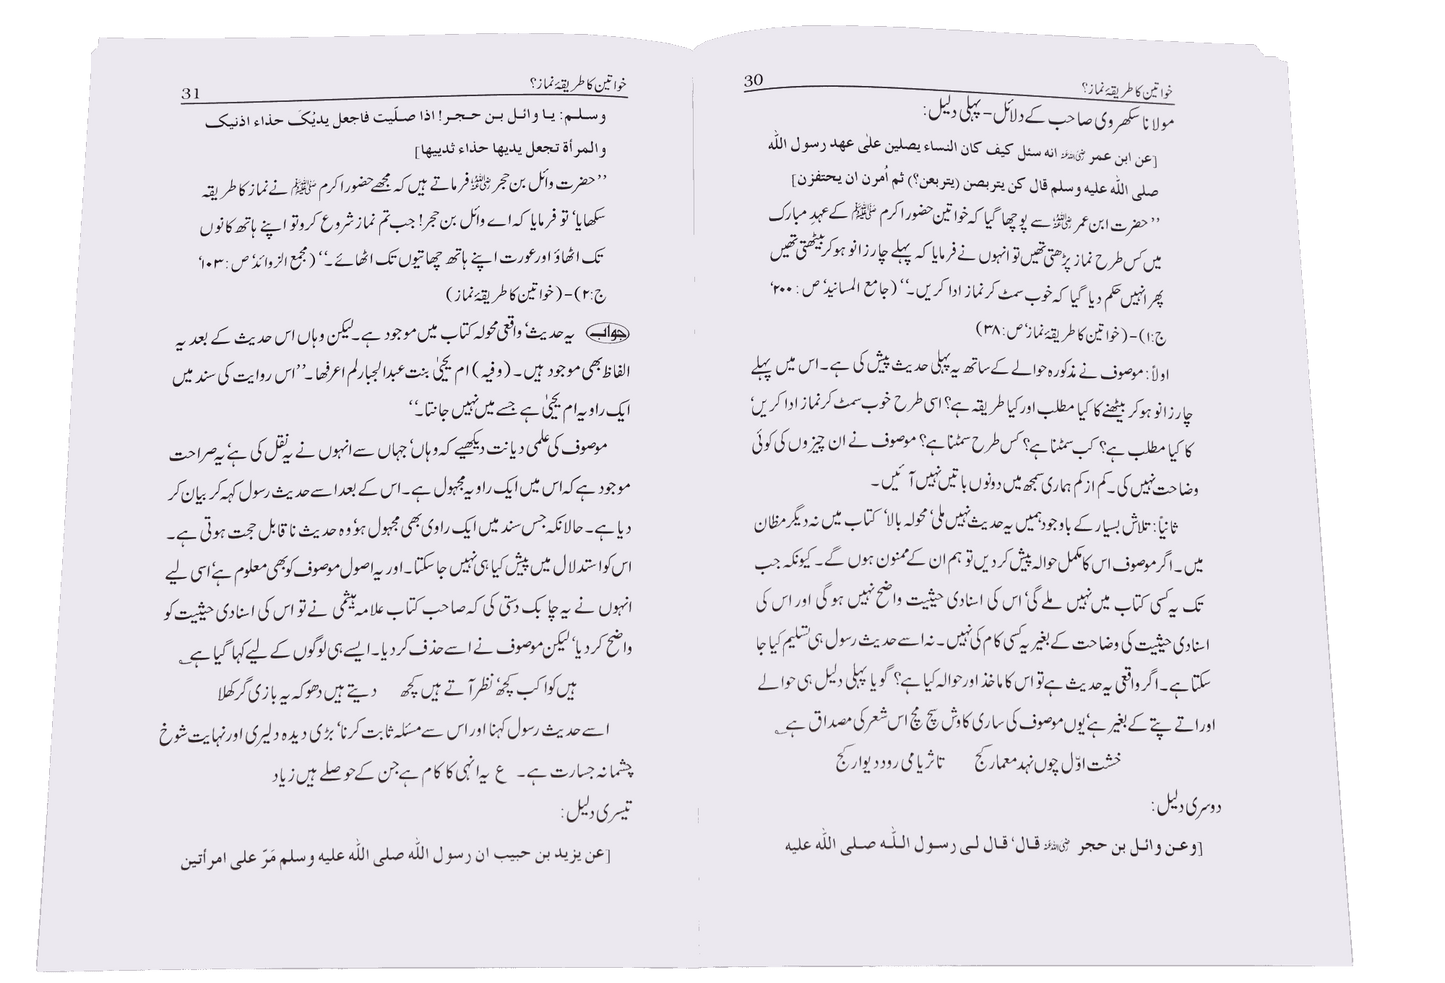 خواتین کا طریقۂ نماز؟ 30
مولانا سکھروی صاحب کے دلائل – پہلی دلیل:
[عن ابن عمر رضی اللہ عنہ انه سئل كيف كان النساء يصلين علىٰ عهد رسول اللّٰه
صلى اللّٰه عليه وسلم قال كن يتربصن (يتربعن؟) ثم اُمرن ان يحتفزن]
’’حضرت ابن عمر رضی اللہ عنہ سے پوچھا گیا کہ خواتین حضور اکرم ﷺ کے عہدِ مبارک
میں کس طرح نماز پڑھتی تھیں تو انہوں نے فرمایا کہ پہلے چار زانو ہو کر بیٹھتی تھیں
پھر انہیں حکم دیا گیا کہ خوب سمٹ کر نماز ادا کریں۔‘‘ (جامع المسانید‘ ص: ۴۰۰‘
ج:۱) – (خواتین کا طریقۂ نماز‘ ص: ۳۸)
اولاً: موصوف نے مذکورہ حوالے کے ساتھ یہ پہلی حدیث پیش کی ہے۔ اس میں پہلے
چار زانو ہو کر بیٹھنے کا کیا مطلب اور کیا طریقہ ہے؟ اسی طرح خوب سمٹ کر نماز ادا کریں‘
کا کیا مطلب ہے؟ کب سمٹنا ہے؟ کس طرح سمٹنا ہے؟ موصوف نے ان چیزوں کی کوئی
وضاحت نہیں کی۔ کم از کم ہماری سمجھ میں دونوں باتیں نہیں آئیں۔
ثانیاً: تلاش بسیار کے باوجود ہمیں یہ حدیث نہیں ملی‘ محولہ بالا کتاب میں نہ دیگر مظان
میں۔ اگر موصوف اس کا مکمل حوالہ پیش کر دیں تو ہم ان کے ممنون ہوں گے۔ کیونکہ جب
تک یہ کسی کتاب میں نہیں ملے گی‘ اس کی اسنادی حیثیت واضح نہیں ہوگی اور اس کی
اسنادی حیثیت کی وضاحت کے بغیر یہ کسی کام کی نہیں۔ نہ اسے حدیث رسول ہی تسلیم کیا جا
سکتا ہے۔ اگر واقعی یہ حدیث ہے تو اس کا ماخذ اور حوالہ کیا ہے؟ گویا پہلی دلیل ہی حوالے
اور اتے پتے کے بغیر ہے‘ یوں موصوف کی ساری کاوش سچ مچ اس شعر کی مصداق ہے؂
خشت اوّل چوں نہد معمار کج تا ثریا می رود دیوار کج
دوسری دلیل:
[وعن وائل بن حجر رضی اللہ عنہ قال‘ قال لى رسول اللّٰه صلى اللّٰه عليه
خواتین کا طریقۂ نماز؟ 31
وسلم: يا وائل بن حجر! اذا صلّيت فاجعل يديْكَ حذاء اذنيك
والمرأة تجعل يديها حذاء ثدييها]
’’حضرت وائل بن حجر رضی اللہ عنہ فرماتے ہیں کہ مجھے حضور اکرم ﷺ نے نماز کا طریقہ
سکھایا‘ تو فرمایا کہ اے وائل بن حجر! جب تم نماز شروع کرو تو اپنے ہاتھ کانوں
تک اٹھاؤ اور عورت اپنے ہاتھ چھاتیوں تک اٹھائے۔‘‘ (مجمع الزوائد‘ ص: ۱۰۳‘
ج:۲) – (خواتین کا طریقۂ نماز)
جواب یہ حدیث‘ واقعی محولہ کتاب میں موجود ہے۔ لیکن وہاں اس حدیث کے بعد یہ
الفاظ بھی موجود ہیں۔ (وفیہ) ام یحییٰ بنت عبدالجبار لم اعرفھا۔ ’’اس روایت کی سند میں
ایک راویہ ام یحییٰ ہے جسے میں نہیں جانتا۔‘‘
موصوف کی علمی دیانت دیکھیے کہ وہاں‘ جہاں سے انہوں نے یہ نقل کی ہے‘ یہ صراحت
موجود ہے کہ اس میں ایک راویہ مجہول ہے۔ اس کے بعد اسے حدیث رسول کہہ کر بیان کر
دیا ہے۔ حالانکہ جس سند میں ایک راوی بھی مجہول ہو‘ وہ حدیث ناقابل حجت ہوتی ہے۔
اس کو استدلال میں پیش کیا ہی نہیں جا سکتا۔ اور یہ اصول موصوف کو بھی معلوم ہے‘ اسی لیے
انہوں نے یہ چابک دستی کی کہ صاحب کتاب علامہ ہیثمی نے تو اس کی اسنادی حیثیت کو
واضح کر دیا‘ لیکن موصوف نے اسے حذف کر دیا۔ ایسے ہی لوگوں کے لیے کہا گیا ہے؂
ہیں کواکب کچھ‘ نظر آتے ہیں کچھ دیتے ہیں دھوکہ یہ بازی گر کھلا
اسے حدیث رسول کہنا اور اس سے مسئلہ ثابت کرنا‘ بڑی دیدہ دلیری اور نہایت شوخ
چشمانہ جسارت ہے۔ ع یہ انہی کا کام ہے جن کے حوصلے ہیں زیاد
تیسری دلیل:
[عن يزيد بن حبيب ان رسول اللّٰه صلى اللّٰه عليه وسلم مَرّ على امرأتين